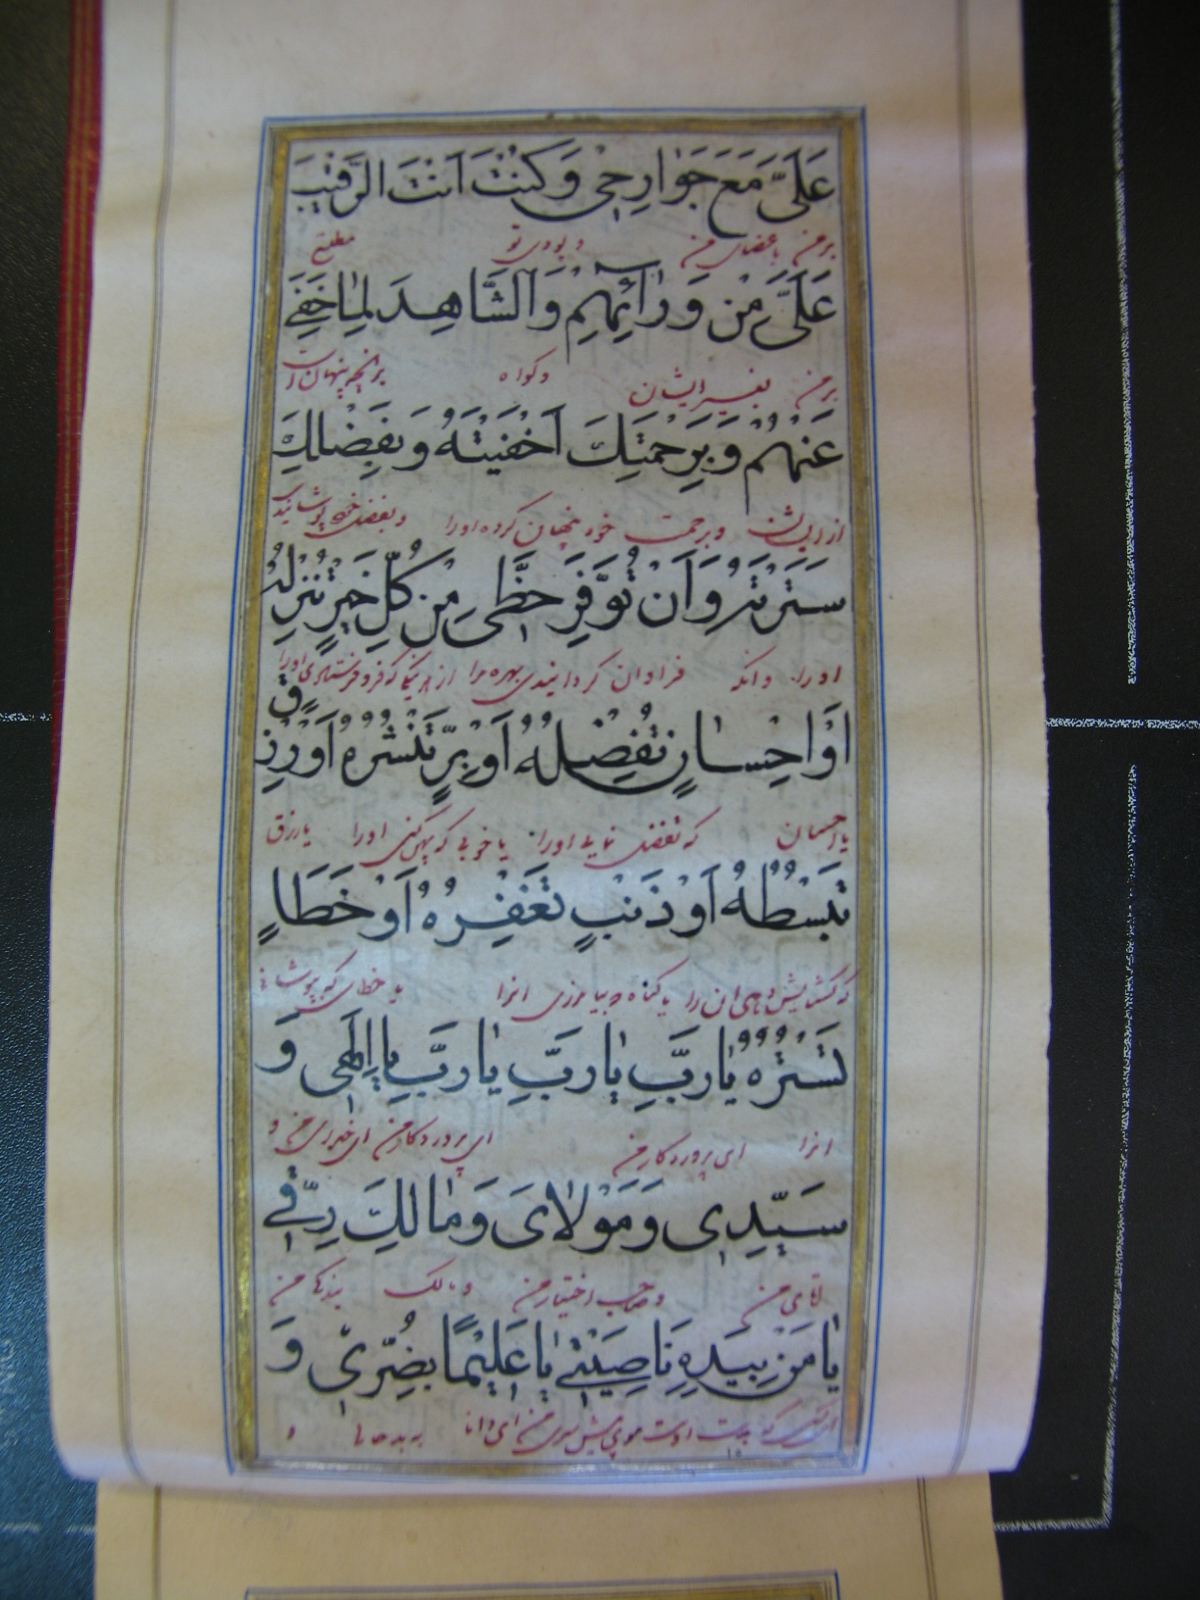 عَلَىَّ مَعَ جَوٰارِحٖى وَكُنْتَ اَنْتَ الرَّقٖيبَ
بر من با عضای من و بودی تو مطلع
عَلَىَّ مِنْ وَرٰائِهِمْ وَالشَّاهِدَ لِمٰا خَفِىَ
بر من و کواه بر انچه پنهان است
عَنْهُمْ وَبِرَحْمَتِكَ اَخْفَيْتَهُ وَبِفَضْلِكَ
از ایشان و برحمت خود پنهان کرده او را و بفضل خود پوشانیدی
سَتَرْتَهُ وَاَنْ تُوَفِّرَ حَظّٖى مِنْ كُلِّ خَيْرٍ تُنْزِلُهُ
او را و انکه فراوان کردانیدی بهره مرا از هر نیکی که فرو فرستاده‌ی او را
اَوْ اِحْسٰانٍ تُفْضِلُهُ اَوْ بِرٍّ تَنْشُرُهُ اَوْ رِزْقٍ
یا احسان که تفضل نمایی او را یا خوبی که پهن کنی او را یا رزق
تَبْسُطُهُ اَوْ ذَنْبٍ تَغْفِرُهُ اَوْ خَطَاءٍ
که کشایش دهی ان را یا کناه که بیامرزی انرا یا خطای که بپوشانی
تَسْتُرُهُ يٰا رَبِّ يٰا رَبِّ يٰا رَبِّ يٰا اِلٰهٖى وَ
انرا ای پروردکار من ای پروردکار من ای خدای من و
سَيِّدٖى وَمَوْلٰاىَ وَمٰالِكَ رِقّٖى
اقای من و صاحب اختیار من و مالک بندکی من
يٰا مَنْ بِيَدِهِ نَاصِيَتٖى يٰا عَلٖيمًا بِضُرّٖى وَ
ای انکه بدست اوست موی پیش سر من ای دانا به بد حالی و